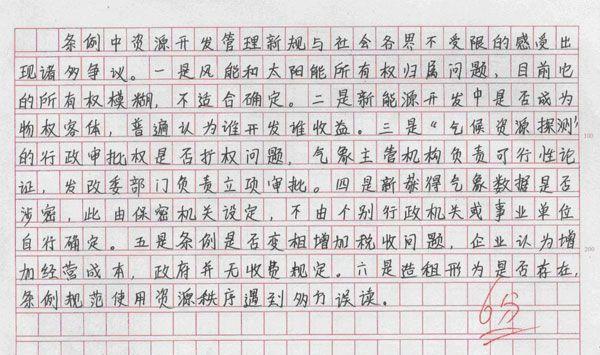 条例中资源开发管理新规与社会各界不受限的感受出
现诸多争议。一是风能和太阳能所有权归属问题，目前它
的所有权模糊，不适合确定。二是新能源开发中是否成为
物权客体，普遍认为谁开发谁收益。三是“气候资源探测”
的行政审批权是否扩权问题，气象主管机构负责可行性论
证，发改委部门负责立项审批。四是新获得气象数据是否
涉密，此由保密机关设定，不由个别行政机关或事业单位
自行确定。五是条例是否变相增加税收问题，企业认为增
加经营成本，政府并无收费规定。六是造租形为是否存在，
条例规范使用资源秩序遇到多方误读。
6分
100
200